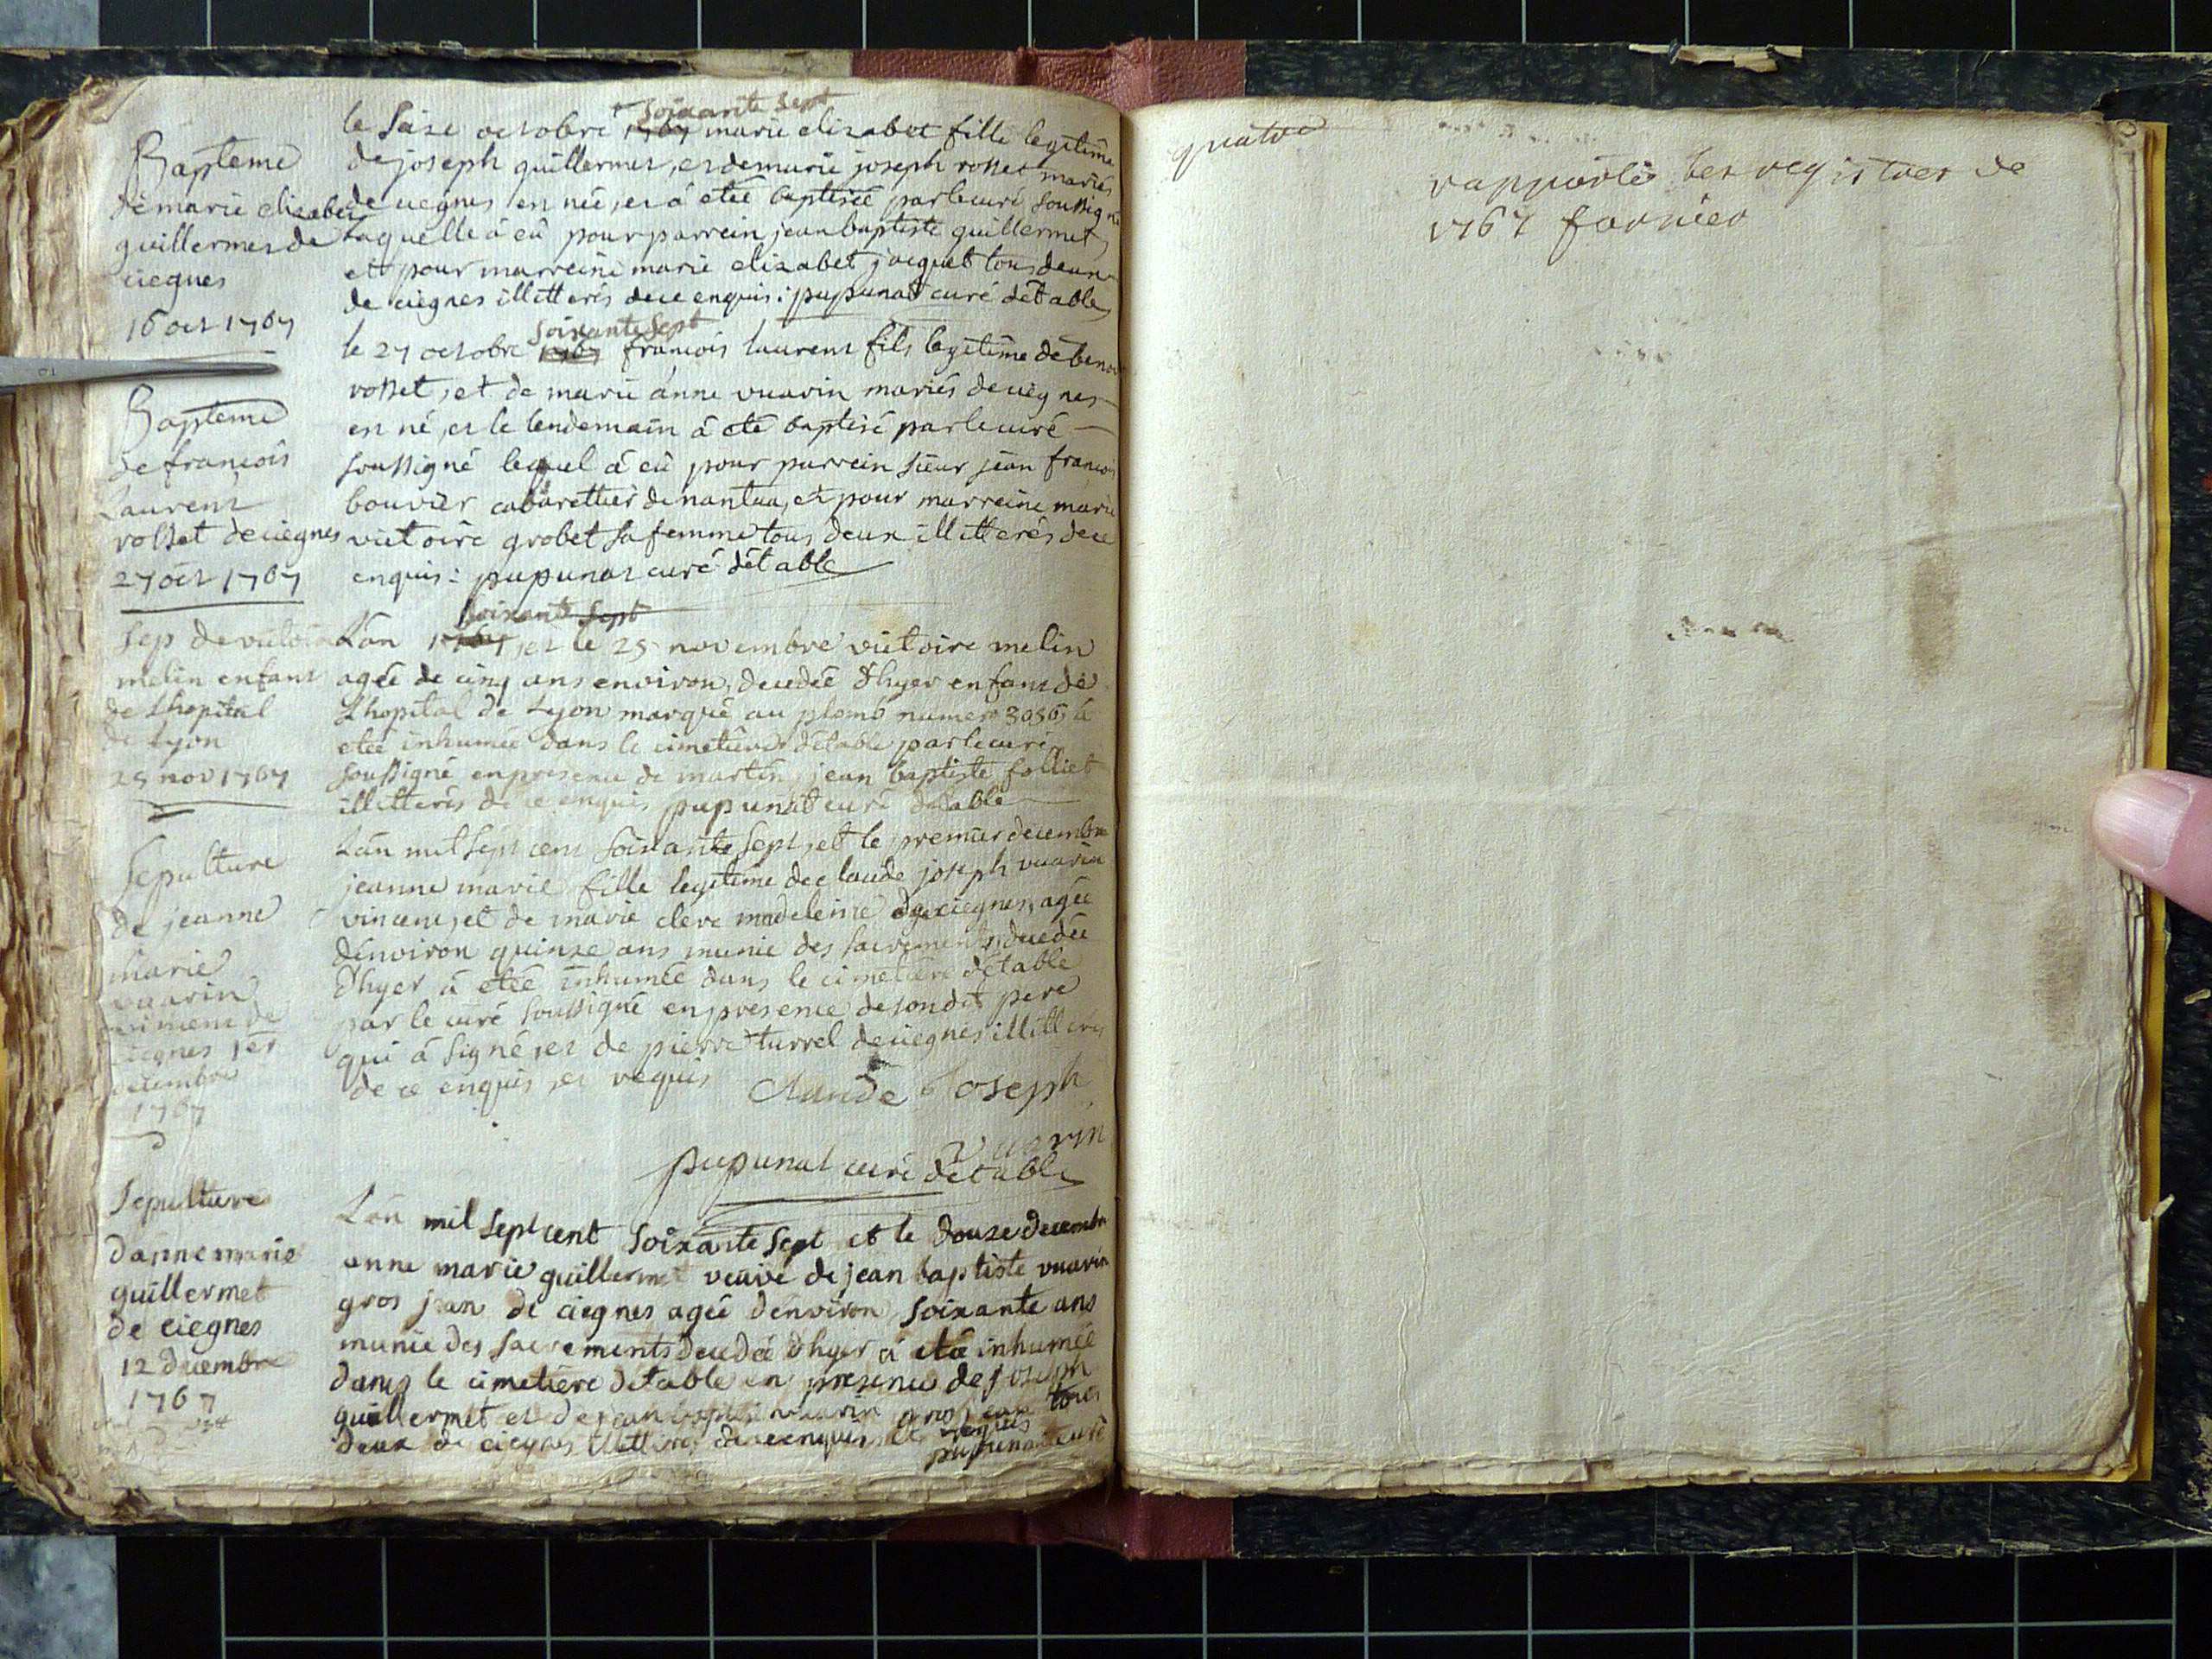 Bapteme
de marie elizabet
guillermet de
ciegnes
16 oct 1767
soixante sept
le saize octobre 1767 marie elizabet fille legitime
de joseph guillermet, et de marie joseph rosset mariés
de ciegnes est née, et á etée baptisée par le curé soussigné
laquelle á eû pour parrein jean baptiste guillermet,
et pour marreine marie elizabet jacquet tous deux
de ciegnes illitterés de ce enquis : pupunat curé détable
Bapteme
de francois
Laurent
rosset de ciegnes
27 oct 1767
soixante sept
le 27 octobre 1767 francois laurent fils legitime de benoit
rosset, et de marie anne vuarin mariés de ciegnes
est né, et le lendemain á eté baptisé par le curé
soussigné lequel á eû pour parrein sieur jean francois
bouvier cabarettier de nantua, et pour marreine marie
victoire grobet sa femme tous deux illitterés de ce
enquis : pupunat curé détable
Sep de victoire
melin enfant
de Lhopital
de Lyon
25 nov 1767
soixante sept
Lan 1767, et le 25 novembre victoire melin
agée de cinq ans environ, decedée d'hyer enfant de
Lhopital de Lyon marqué au plomb numero 3036 á
etée inhumée dans le cimetiére détable par le curé
soussigné en presence de martin, jean baptiste folliet
illitterés de ce enquis pupunat curé détable
Sepulture
de jeanne
marie
vuarin
vincent de
ciegnes 1er
decembre
1767
Lan mil sept cent soixante sept, et le premier decembre
jeanne marie fille legitime de claude joseph vuarin
vincent, et de marie clere madeleine de ciegnes, agée
denviron quinze ans munie des sacrements, decedée
d'hyer á etée inhumée dans le cimetiére détable
par le curé soussigné en presence de son dit pere
qui á signé, et de pierre turrel de ciegnes illitterés
de ce enquis, et requis Claude Joseph
Vuarin
pupunat curé détable
Sepulture
danne marie
guillermet
de ciegnes
12 decembre
1767
Lan mil sept cent soixante sept et le douze decembre
anne marie guillermet veuve de jean baptiste vuarin
gros jean de ciegnes agée denviron soixante ans
munie des sacrements decedée d'hyer á etée inhumée
dans le cimetiére détable en presence de joseph
guillermet et de jean baptiste vuarin gros jean tous
deux de ciegnes illitterés de ce enquis et requis
pupunat curé
quatre
rapporté les registres de
1767 favrier